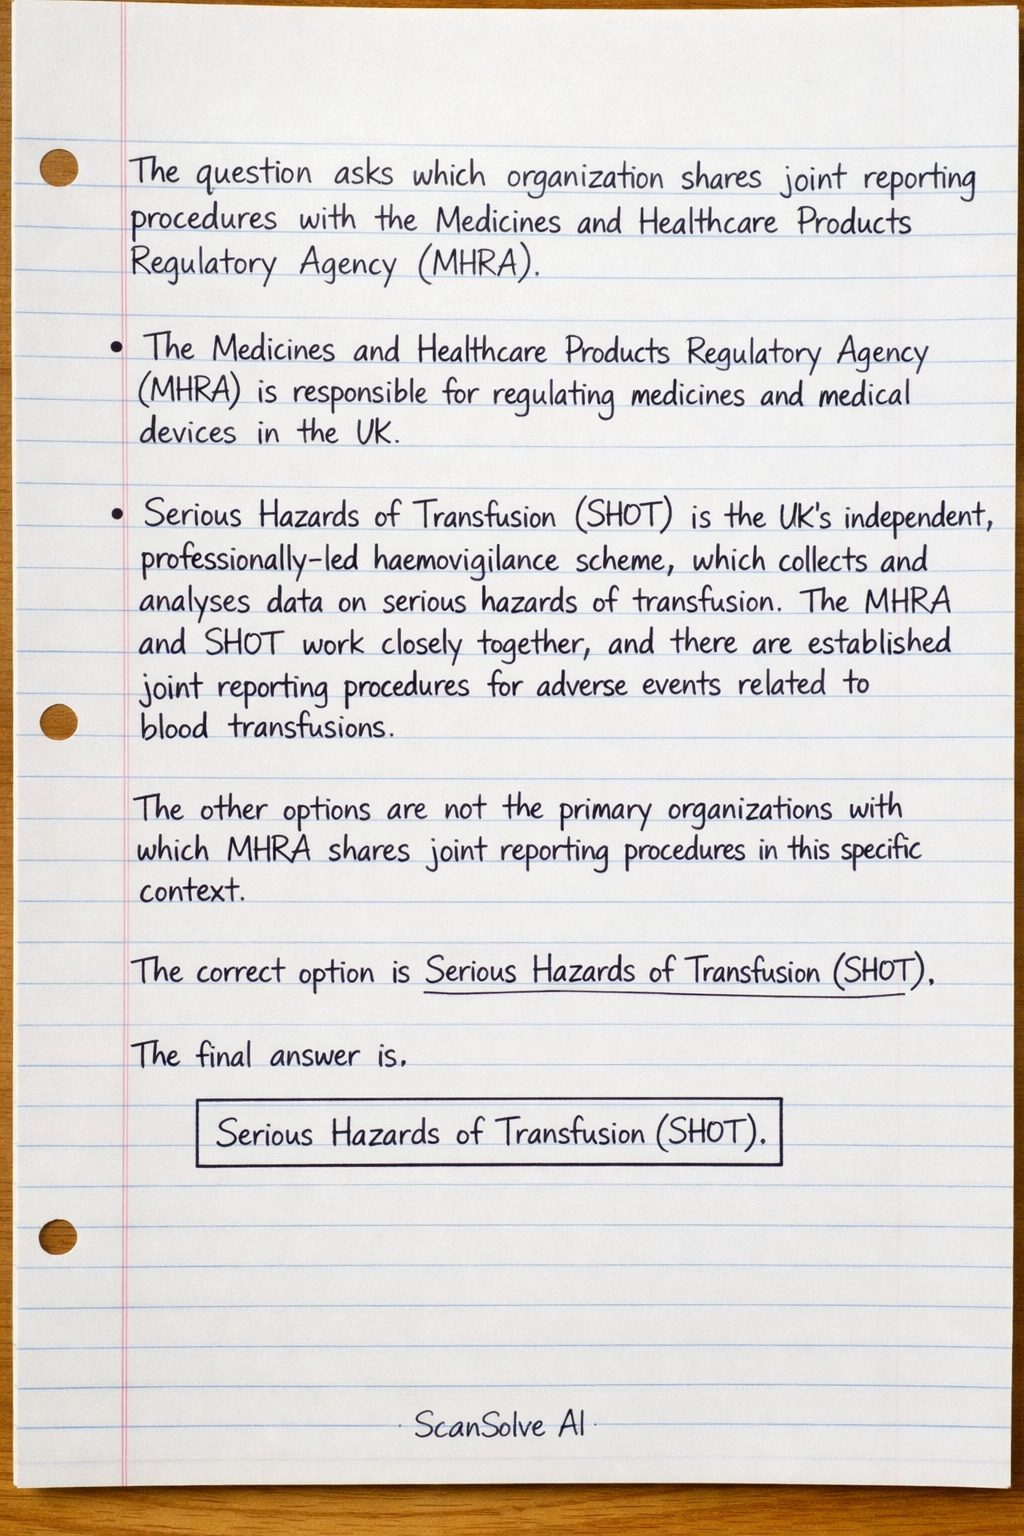 The question asks which organization shares joint reporting
procedures with the Medicines and Healthcare Products
Regulatory Agency (MHRA).
• The Medicines and Healthcare Products Regulatory Agency
(MHRA) is responsible for regulating medicines and medical
devices in the UK.
• Serious Hazards of Transfusion (SHOT) is the UK's independent,
professionally-led haemovigilance scheme, which collects and
analyses data on serious hazards of transfusion. The MHRA
and SHOT work closely together, and there are established
joint reporting procedures for adverse events related to
blood transfusions.
The other options are not the primary organizations with
which MHRA shares joint reporting procedures in this specific
context.
The correct option is Serious Hazards of Transfusion (SHOT).
The final answer is.
Serious Hazards of Transfusion (SHOT).
· ScanSolve AI ·